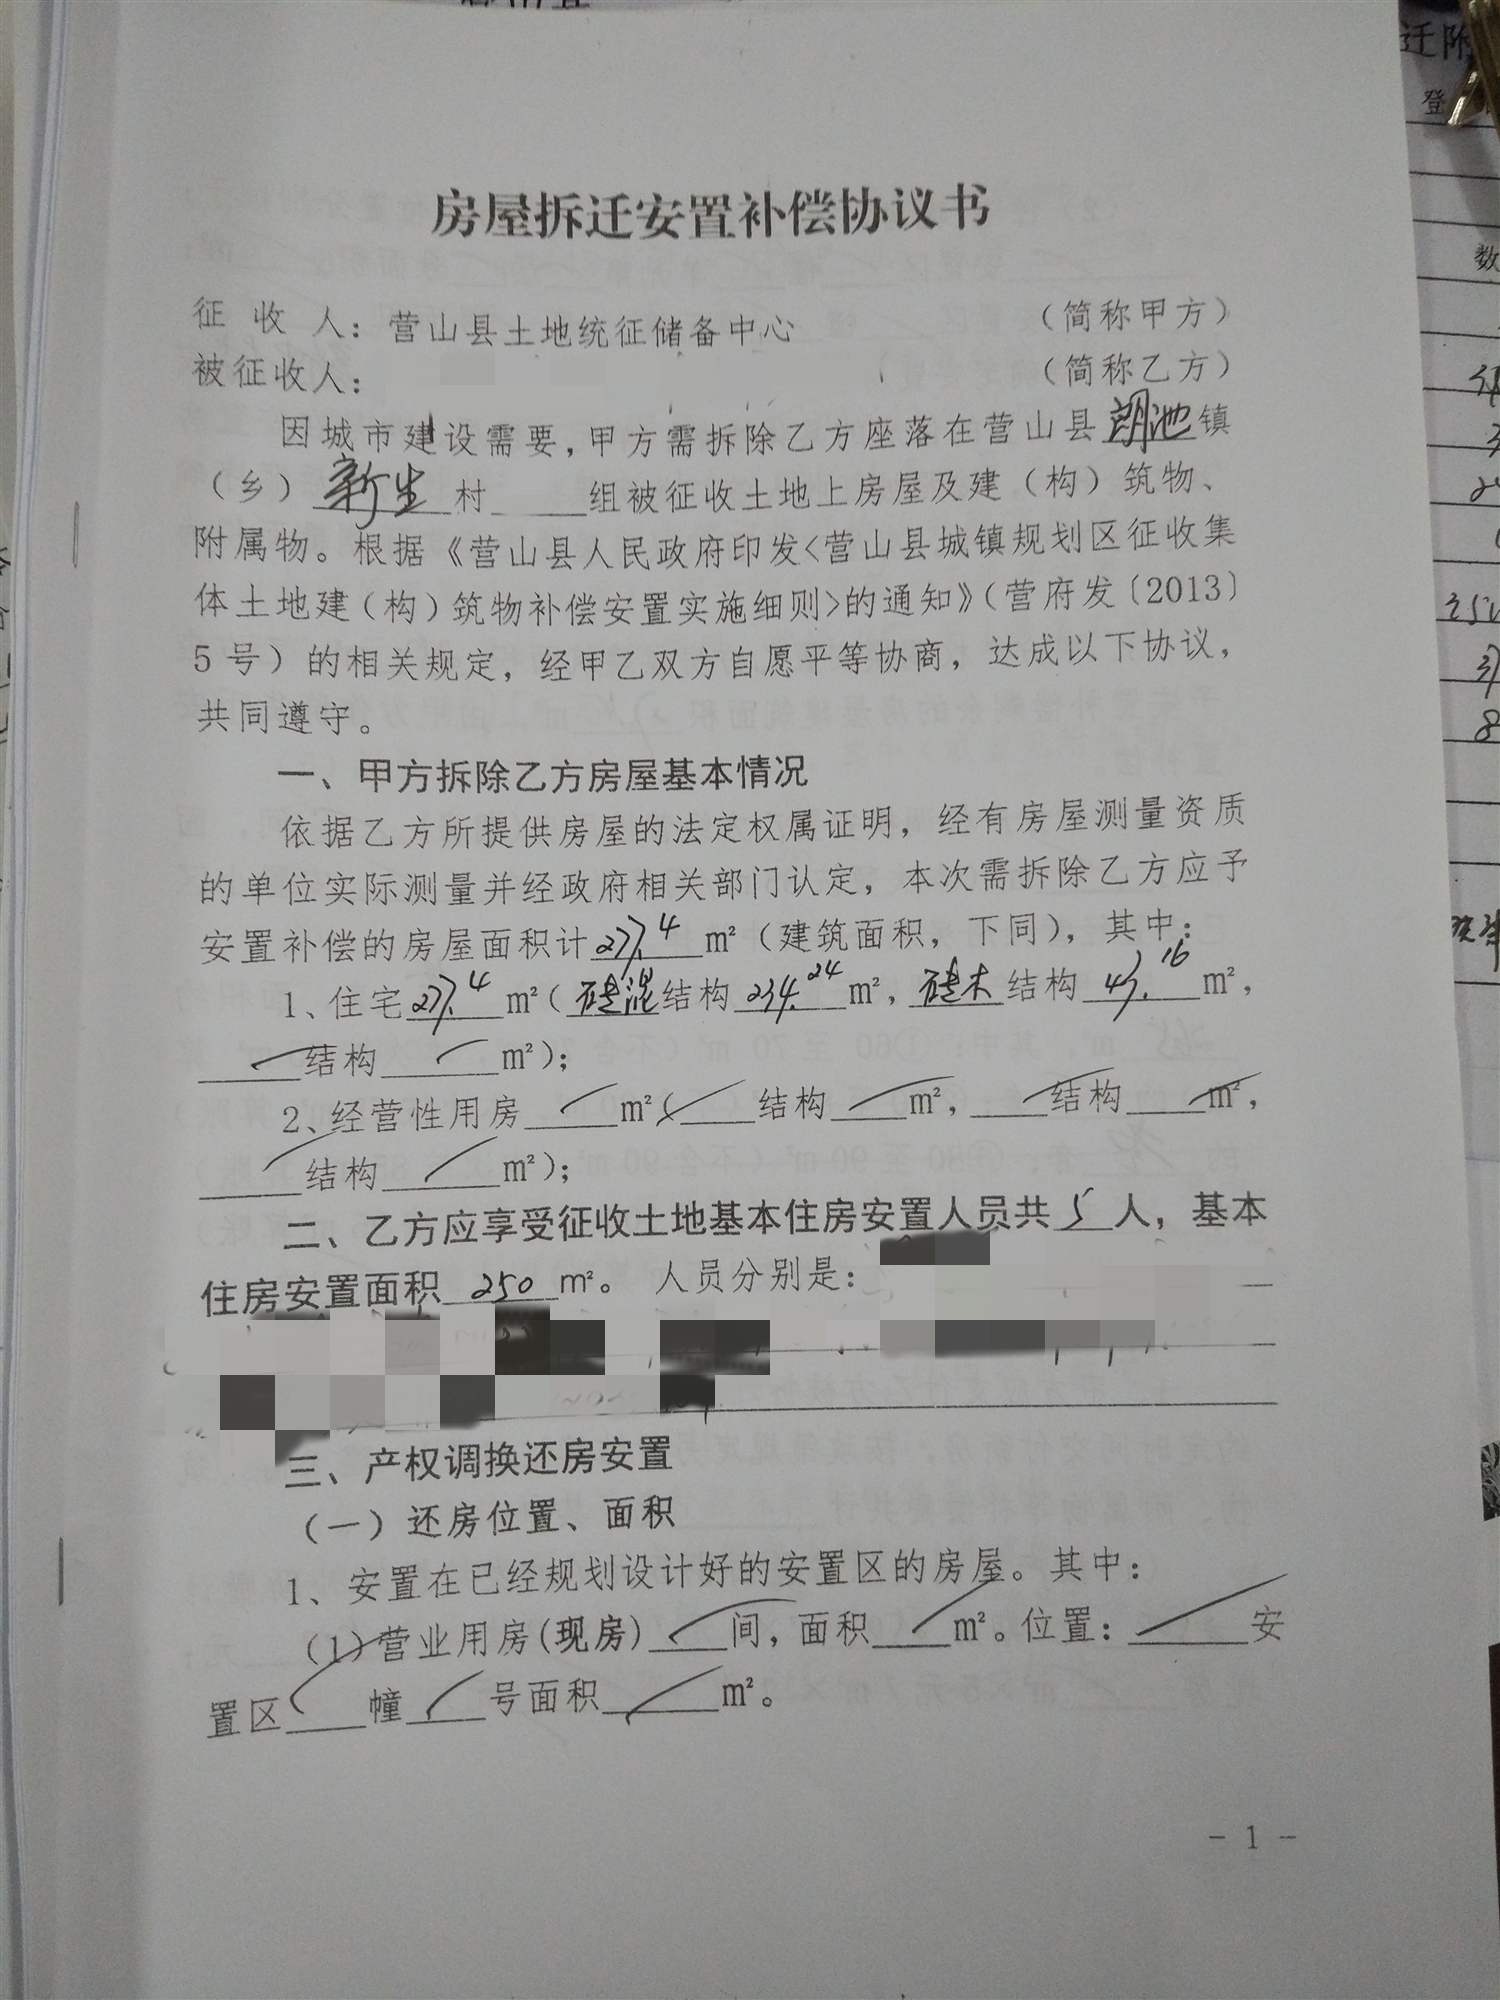 房屋拆迁安置补偿协议书
征收人：营山县土地统征储备中心（简称甲方）
被征收人：（简称乙方）
因城市建设需要，甲方需拆除乙方座落在营山县朗池镇
（乡）新生村____组被征收土地上房屋及建（构）筑物、
附属物。根据《营山县人民政府印发<营山县城镇规划区征收集
体土地建（构）筑物补偿安置实施细则>的通知》（营府发〔2013〕
5号）的相关规定，经甲乙双方自愿平等协商，达成以下协议，
共同遵守。
一、甲方拆除乙方房屋基本情况
依据乙方所提供房屋的法定权属证明，经有房屋测量资质
的单位实际测量并经政府相关部门认定，本次需拆除乙方应予
安置补偿的房屋面积计277.4m²（建筑面积，下同），其中：
1、住宅277.4m²（砖混结构234.24m²，砖木结构43.16m²，
____结构____m²）；
2、经营性用房____m²（____结构____m²，____结构____m²，
____结构____m²）；
二、乙方应享受征收土地基本住房安置人员共5人，基本
住房安置面积250m²。人员分别是：
三、产权调换还房安置
（一）还房位置、面积
1、安置在已经规划设计好的安置区的房屋。其中：
（1）营业用房（现房）____间，面积____m²。位置：____安
置区____幢____号面积____m²。
- 1 -
迁附
登
数
8